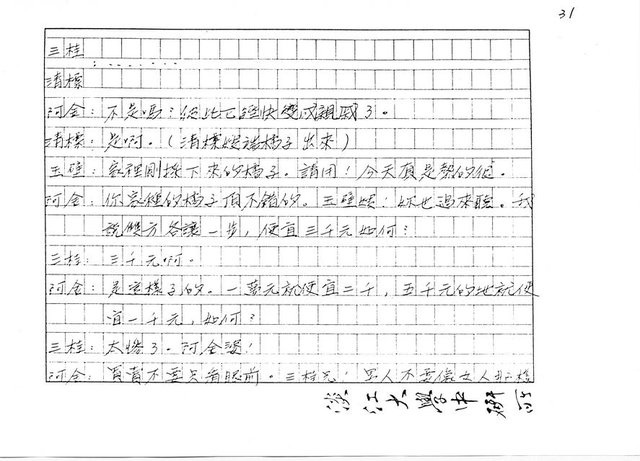 31
三桂：
清標
阿金：不是嗎？從此已經快變成親戚了。
清標：是啊。（清標嫂端橘子出來）
玉璧：家裡剛採下來的橘子。請用！今天頂是熱的。
阿金：你家種的橘子頂不錯的。玉璧嫂！妳也過來聽。我
說雙方各讓一步，便宜三千元如何？
三桂：三千元啊。
阿金：是這樣子的。一萬元就便宜二千，五千元的地就便
宜一千元，如何？
三桂：太慘了。阿金婆！
阿金：買賣不要只看眼前。三桂兄！男人不要像女人
淡江大學中研所